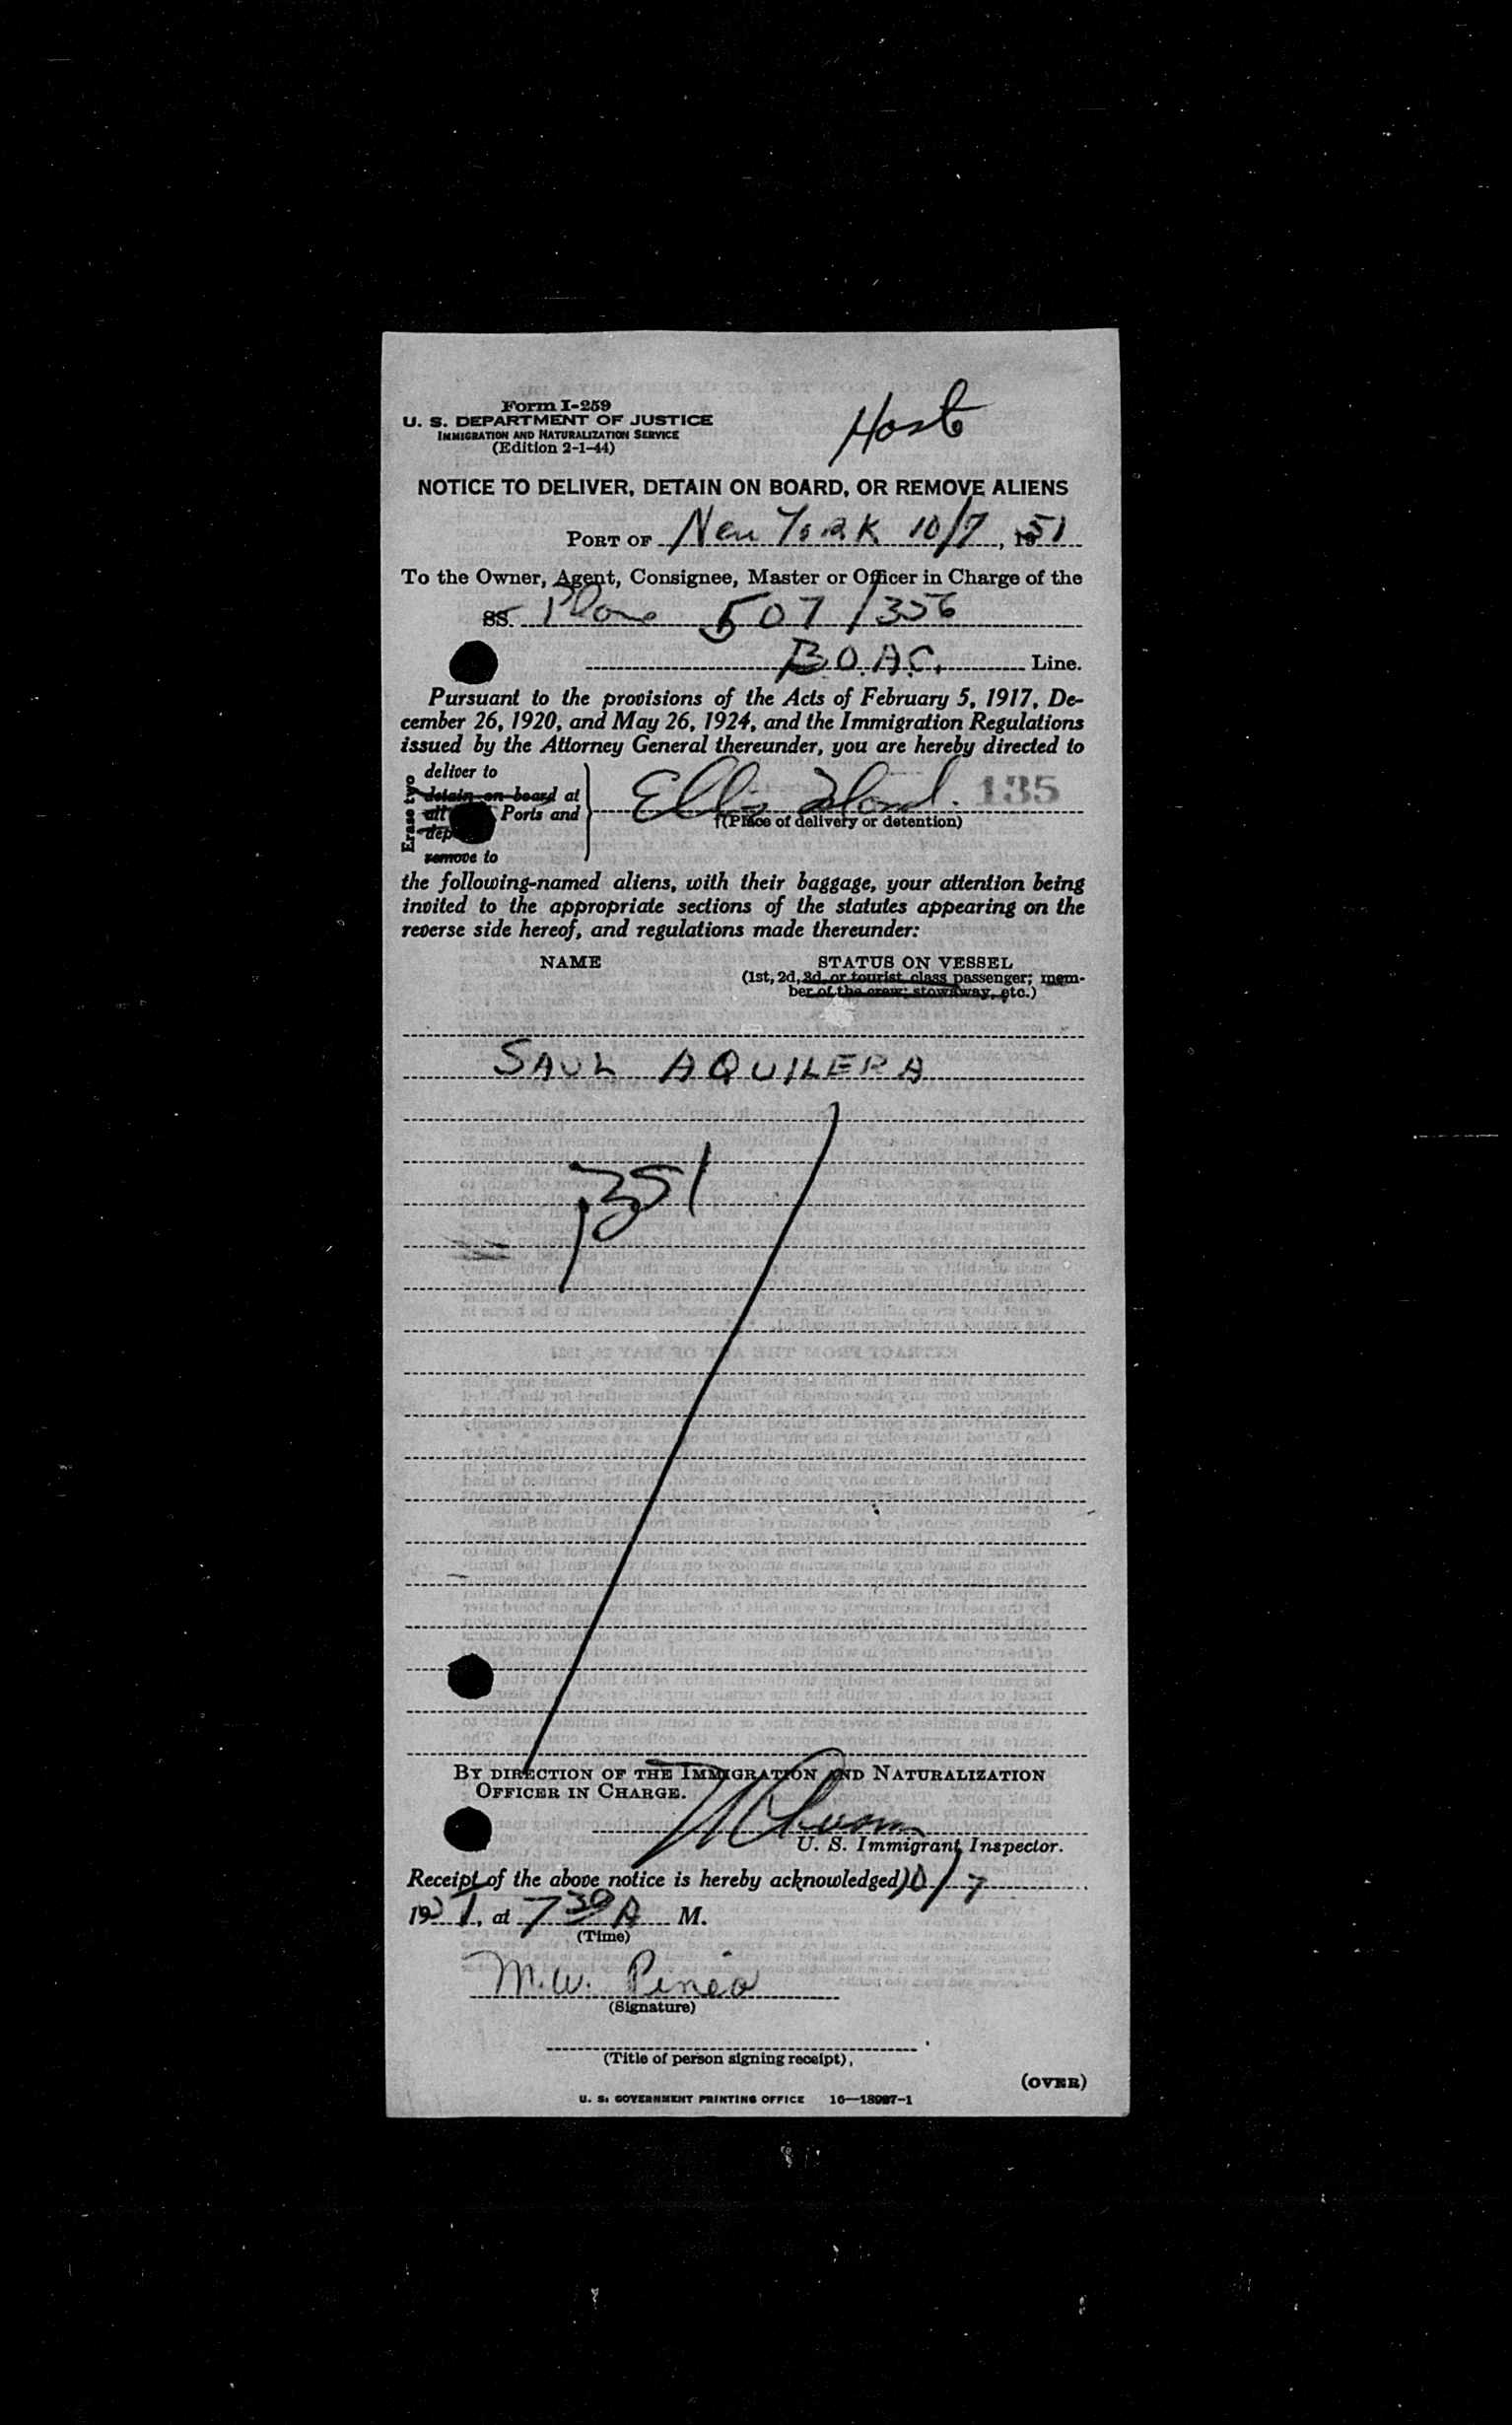 Form I-259
U. S. DEPARTMENT OF JUSTICE
IMMIGRATION AND NATURALIZATION SERVICE
(Edition 2-1-44)
NOTICE TO DELIVER, DETAIN ON BOARD, OR REMOVE ALIENS
PORT OF New York 10/7, 1951
To the Owner, Agent, Consignee, Master or Officer in Charge of the
SS. Plane 507/356
B.O.A.C. Line.
Pursuant to the provisions of the Acts of February 5, 1917, De-
cember 26, 1920, and May 26, 1924, and the Immigration Regulations
issued by the Attorney General thereunder, you are hereby directed to
Erase two
deliver to
detain on board at
all Ports and
dep
remove to
Ellis Island. 135
†(Place of delivery or detention)
the following-named aliens, with their baggage, your attention being
invited to the appropriate sections of the statutes appearing on the
reverse side hereof, and regulations made thereunder:
NAME STATUS ON VESSEL
(1st, 2d, 3d, or tourist class passenger; mem-
ber of the crew; stowaway, etc.)
SAUL AQUILERA
BY DIRECTION OF THE IMMIGRATION AND NATURALIZATION
OFFICER IN CHARGE.
U. S. Immigrant Inspector.
Receipt of the above notice is hereby acknowledged 10/7
1951, at 7 30 A M.
(Time)
M.W. Pineo
(Signature)
(Title of person signing receipt)
(OVER)
U. S. GOVERNMENT PRINTING OFFICE 16—18987-1